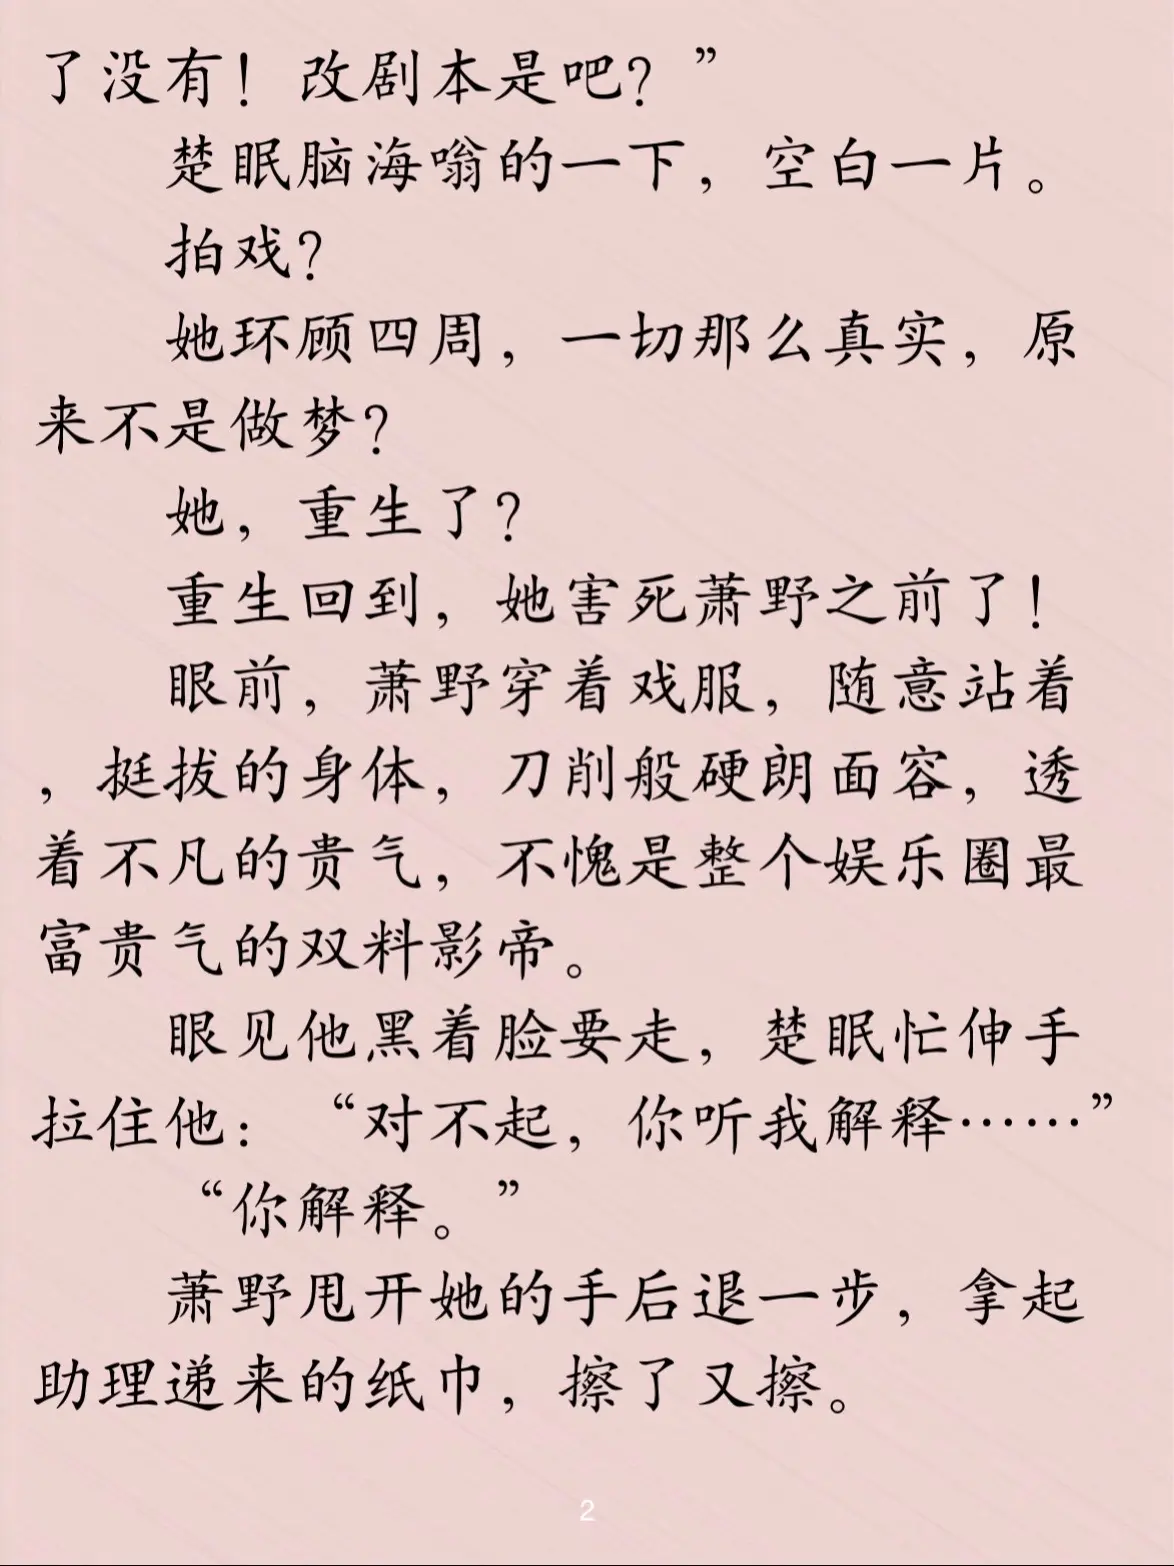 了没有！改剧本是吧？”
楚眠脑海嗡的一下，空白一片。
拍戏？
她环顾四周，一切那么真实，原
来不是做梦？
她，重生了？
重生回到，她害死萧野之前了！
眼前，萧野穿着戏服，随意站着
，挺拔的身体，刀削般硬朗面容，透
着不凡的贵气，不愧是整个娱乐圈最
富贵气的双料影帝。
眼见他黑着脸要走，楚眠忙伸手
拉住他：“对不起，你听我解释……”
“你解释。”
萧野甩开她的手后退一步，拿起
助理递来的纸巾，擦了又擦。
2